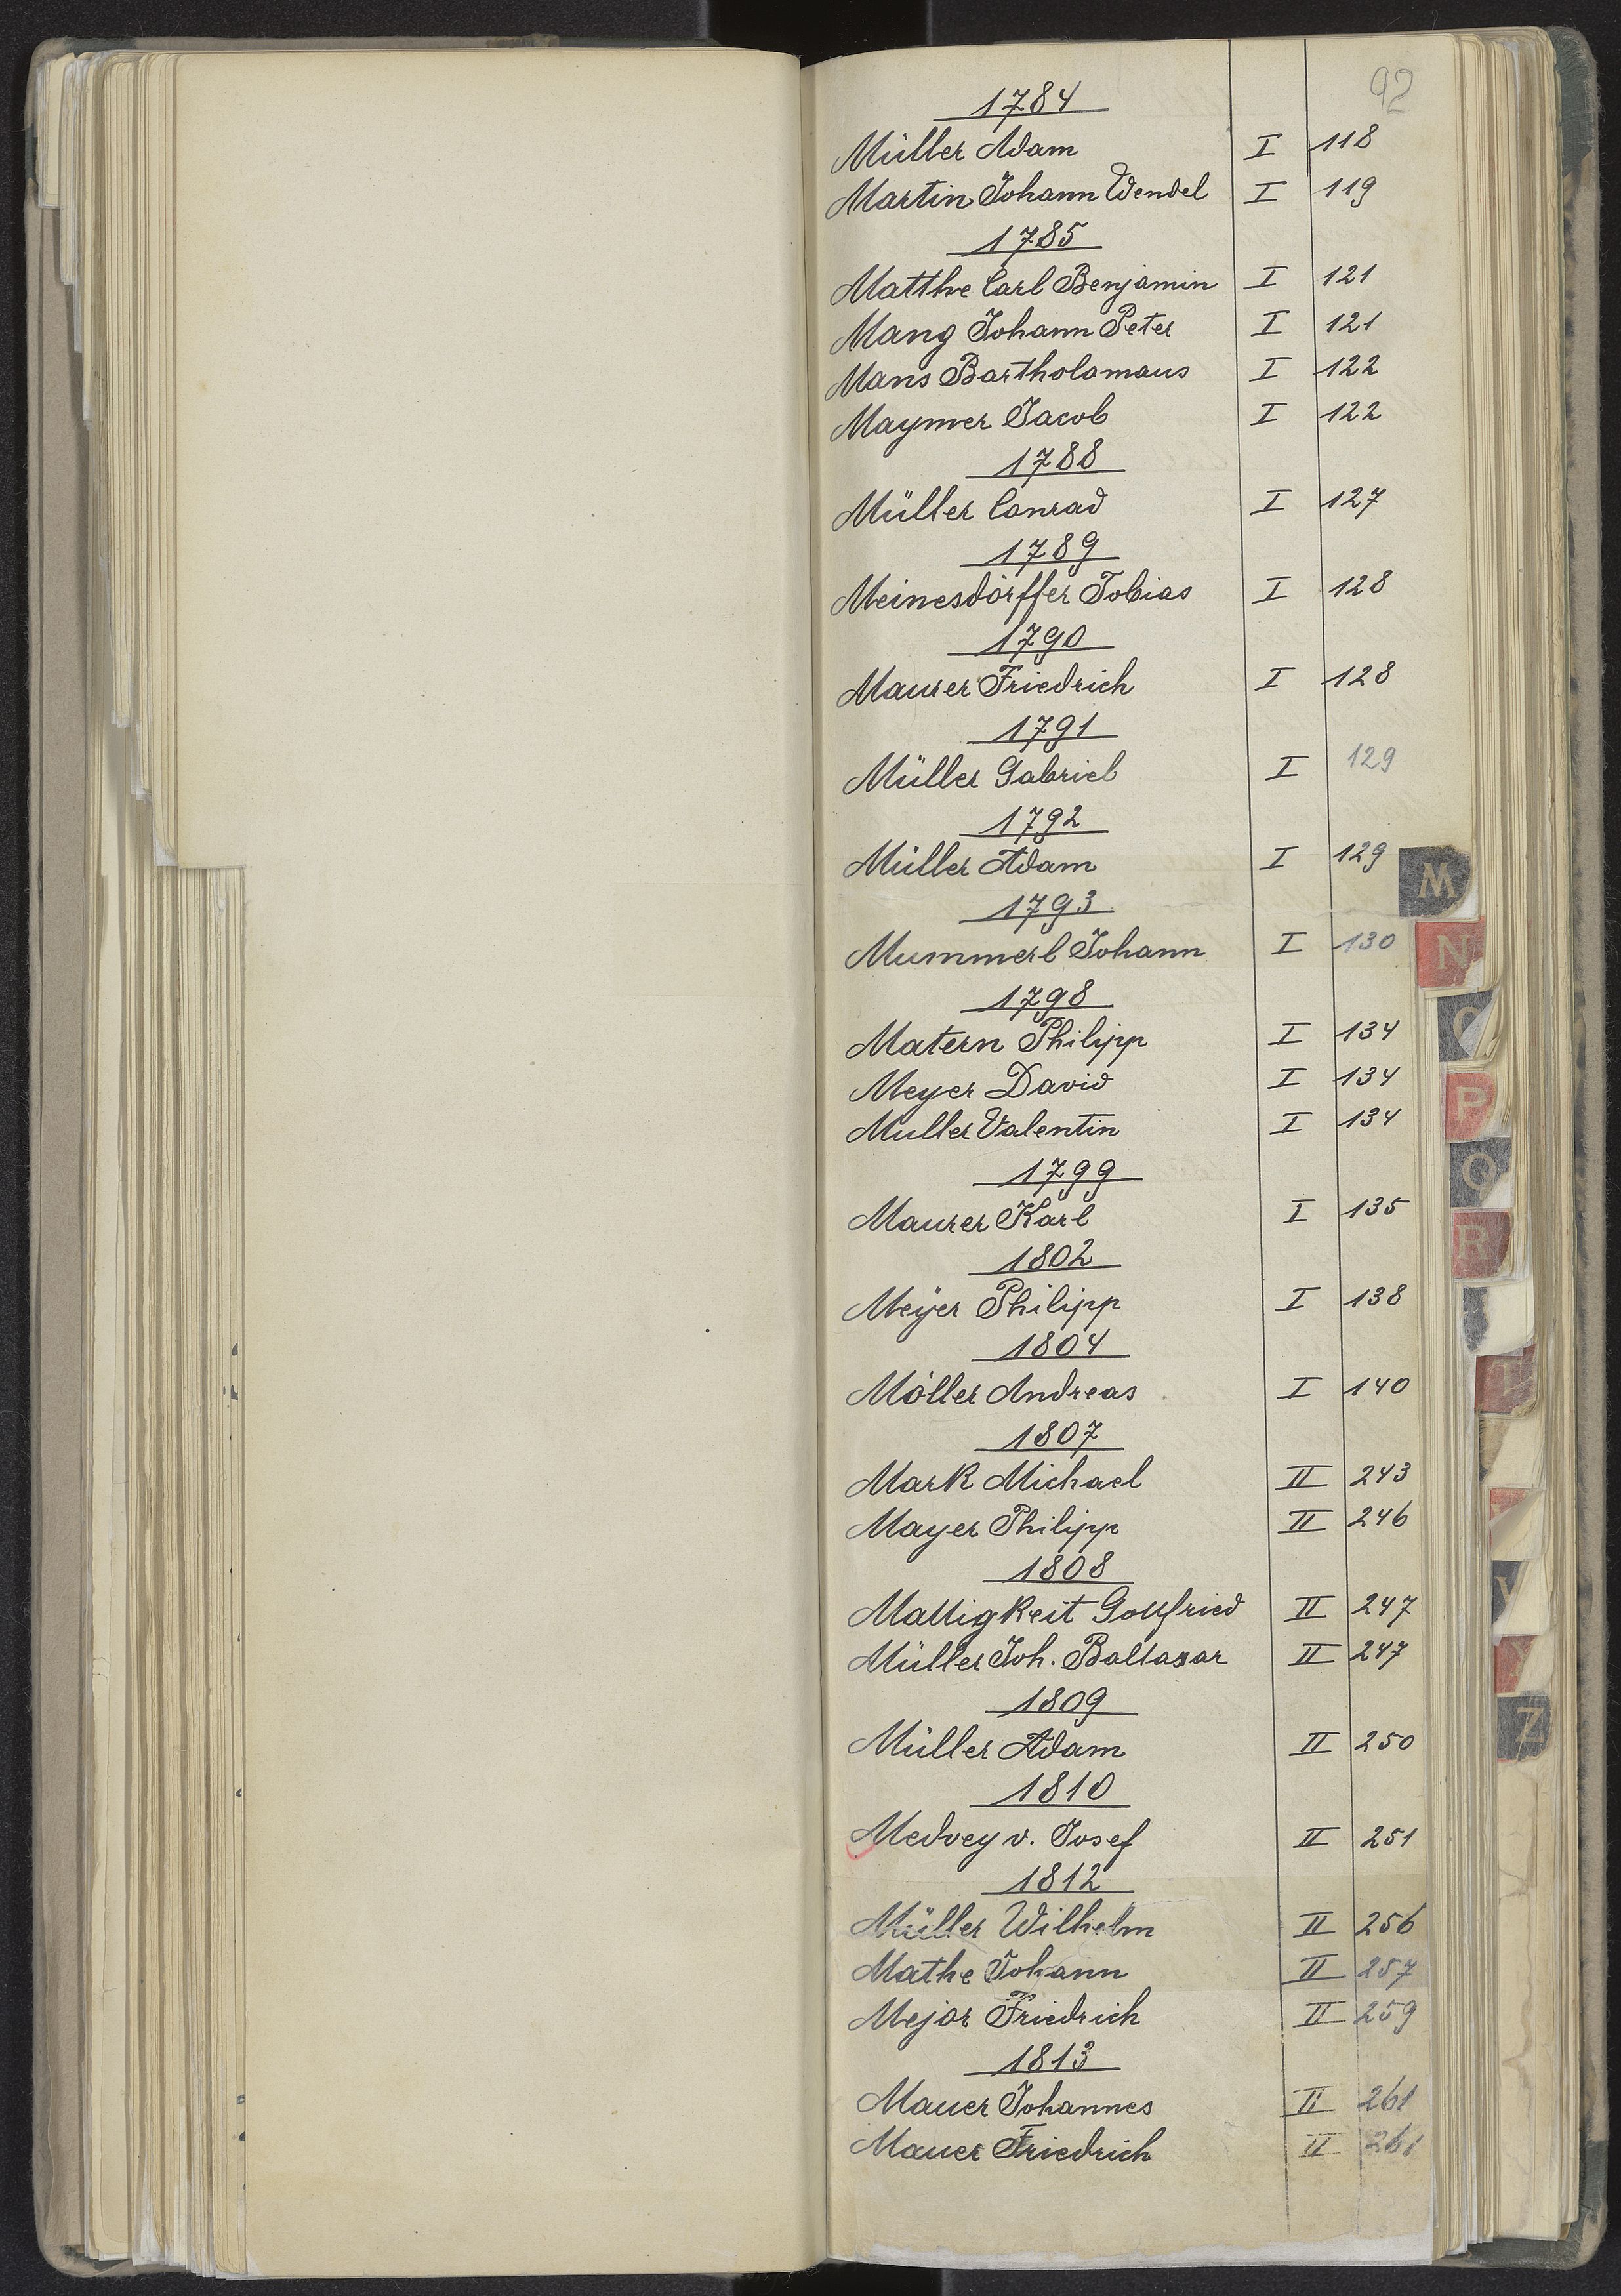 92
1784
Müller Adam I 118
Martin Johann Wendel I 119
1785
Matthe Carl Benjamin I 121
Mang Johann Peter I 121
Mans Bartholomaus I 122
Maymer Jacob I 122
1788
Müller Conrad I 127
1789
Meinesdörffer Tobias I 128
1790
Maurer Friedrich I 128
1791
Müller Gabriel I 129
1792
Müller Adam I 129
M
1793
Mummerl Johann I 130
N
1798
Matern Philipp I 134
Meyer David I 134
P
Muller Valentin I 134
1799
Q
Maurer Karl I 135
R
1802
Meÿer Philipp I 138
1804
Möller Andreas I 140
T
1807
Mark Michael II 243
Mayer Philipp II 246
1808
Mattigkeit Gottfried II 247
Müller Joh. Baltasar II 247
1809
Z
Müller Adam II 250
1810
Medvey v. Josef II 251
1812
Müller Wilhelm II 256
Mathe Johann II 257
Mejor Friedrich II 259
1813
Mauer Johannes II 261
Mauer Friedrich II 261